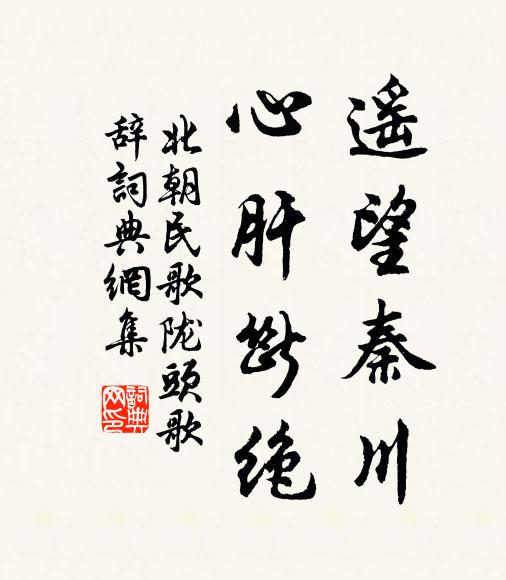 遥望秦川
心肝断绝
北朝民歌陇頭歌
辞詞典網集
詞典
网印